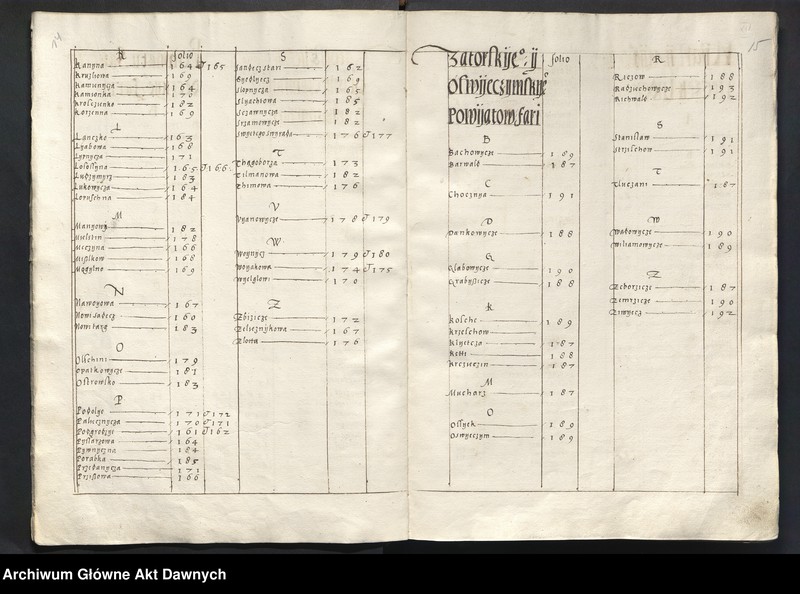 14
K folio
Kanyna 164 et 165
Kruzlowa 169
Kamunycza 164
Kamionka 170
Kroscienko 182
Korzenna 169
L
Lanczke 163
Lyabowa 168
Lypnycza 171
Lososzyna 165 et 166
Ludzymyrz 183
Lukowycza 164
Lopuschna 184
M
Manyowy 182
Melstin 178
Meczyna 166
Mistkow 168
Mogylno 169
N
Nawoyowa 167
Nowi Sandecz 160
Nowi targ 183
O
Olschini 179
Opatkowycze 181
Ostrowsko 183
P
Podolye 171 et 172
Palecznycza 170 et 171
Podgrodzye 161 et 162
Pyssarzowa 164
Pywnyczna 184
Poramba 185
Przidanycza 171
Przissowa 166
S
Sandecz stari 182
Syedlycze 169
Slopnycza 165
Slyachowa 185
Sczawnycza 182
Srzamowycze 182
Swyetego Smyrada 176 et 177
T
Thagoborza 173
Tilmanowa 182
Thimowa 176
V
Vyanowycze 178 et 179
W
Woynycz 179 et 180
Woyakowa 174 et 175
Wyelglowi 170
Z
Zbiszicze 172
Zelieznykowa 167
Zlotha 176
15
Zatorskije° ij
Oswijeczijmskije°
Powijatow, fari
folio
B
Bachowycze 189
Barwald 187
C
Chocznya 191
D
Dankowycze 188
G
Glabowycze 190
Grabyszicze 188
K
Kosche 189
Krzeschow
Klyeteza 187
Keti 188
Krczuczin 187
M
Mucharz 187
O
Ossyek 189
Oswyeczym 189
R
Riczow 188
Radzuchowycze 193
Richwald 192
S
Stanislaw 191
Strzischow 191
T
Tluczani 187
W
Wadowycze 190
Wiliamowycze 189
Z
Zeborzicze 187
Zemzicze 190
Ziwyecz 192
Archiwum Główne Akt Dawnych